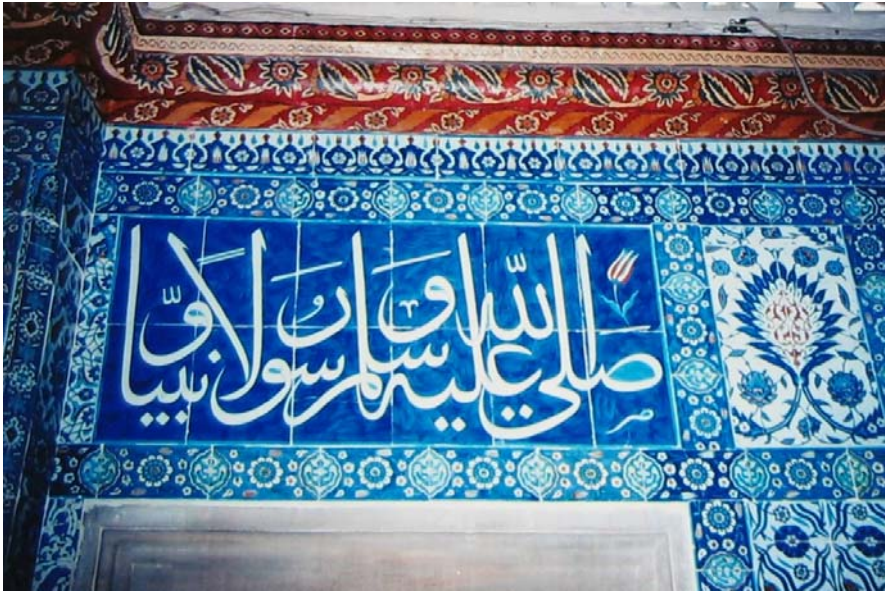 صلي الله عليه وسلم رسولا ونبيا